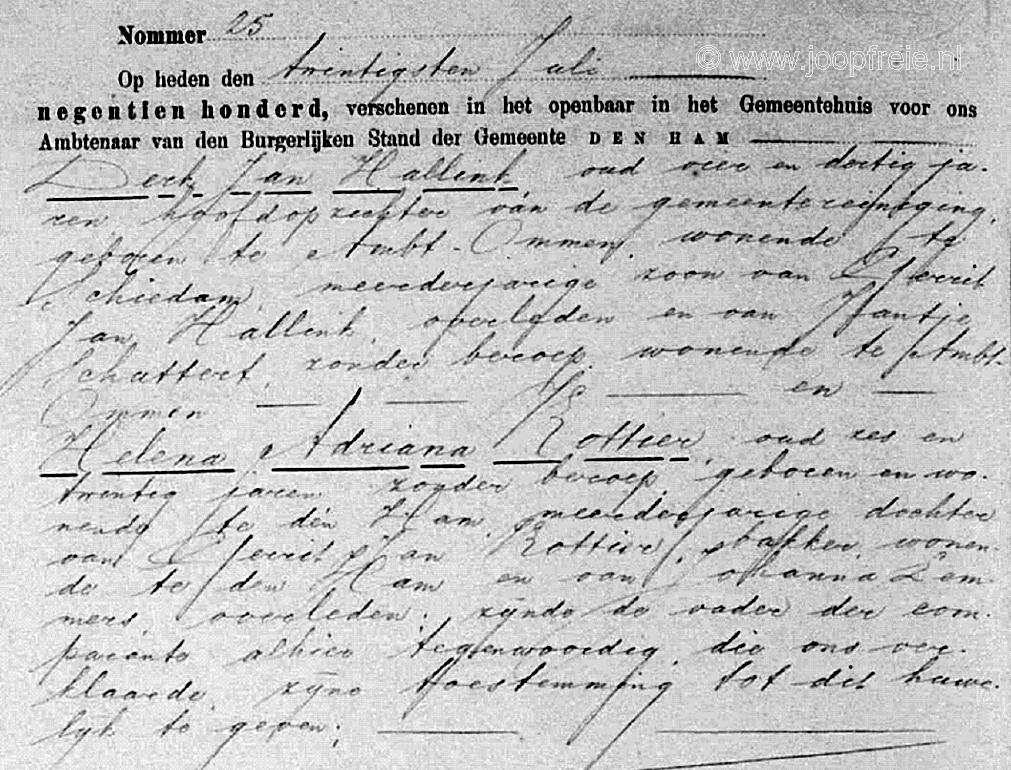 Nommer 25
© www.joopfreie.nl
Op heden den twintigsten Juli
negentien honderd, verschenen in het openbaar in het Gemeentehuis voor ons
Ambtenaar van den Burgerlijken Stand der Gemeente DEN HAM
Derk Jan Hallink, oud vier en dertig ja-
ren, hoofdopzichter van de gemeentereiniging,
geboren te Ambt-Ommen, wonende te
Schiedam, meerderjarige zoon van Gerrit
Jan Hallink, overleden en van Jantje
Schottert, zonder beroep, wonende te Ambt-
Ommen en
Helena Adriana Rottier, oud zes en
twintig jaren, zonder beroep, geboren en wo-
nende te den Ham, meerderjarige dochter
van Gerrit Jan Rottier, bakker, wonen-
de te den Ham en van Johanna Lem-
mers, overleden; zijnde de vader der com-
parante alhier tegenwoordig, die ons ver-
klaarde zijne toestemming tot dit huwe-
lijk te geven;